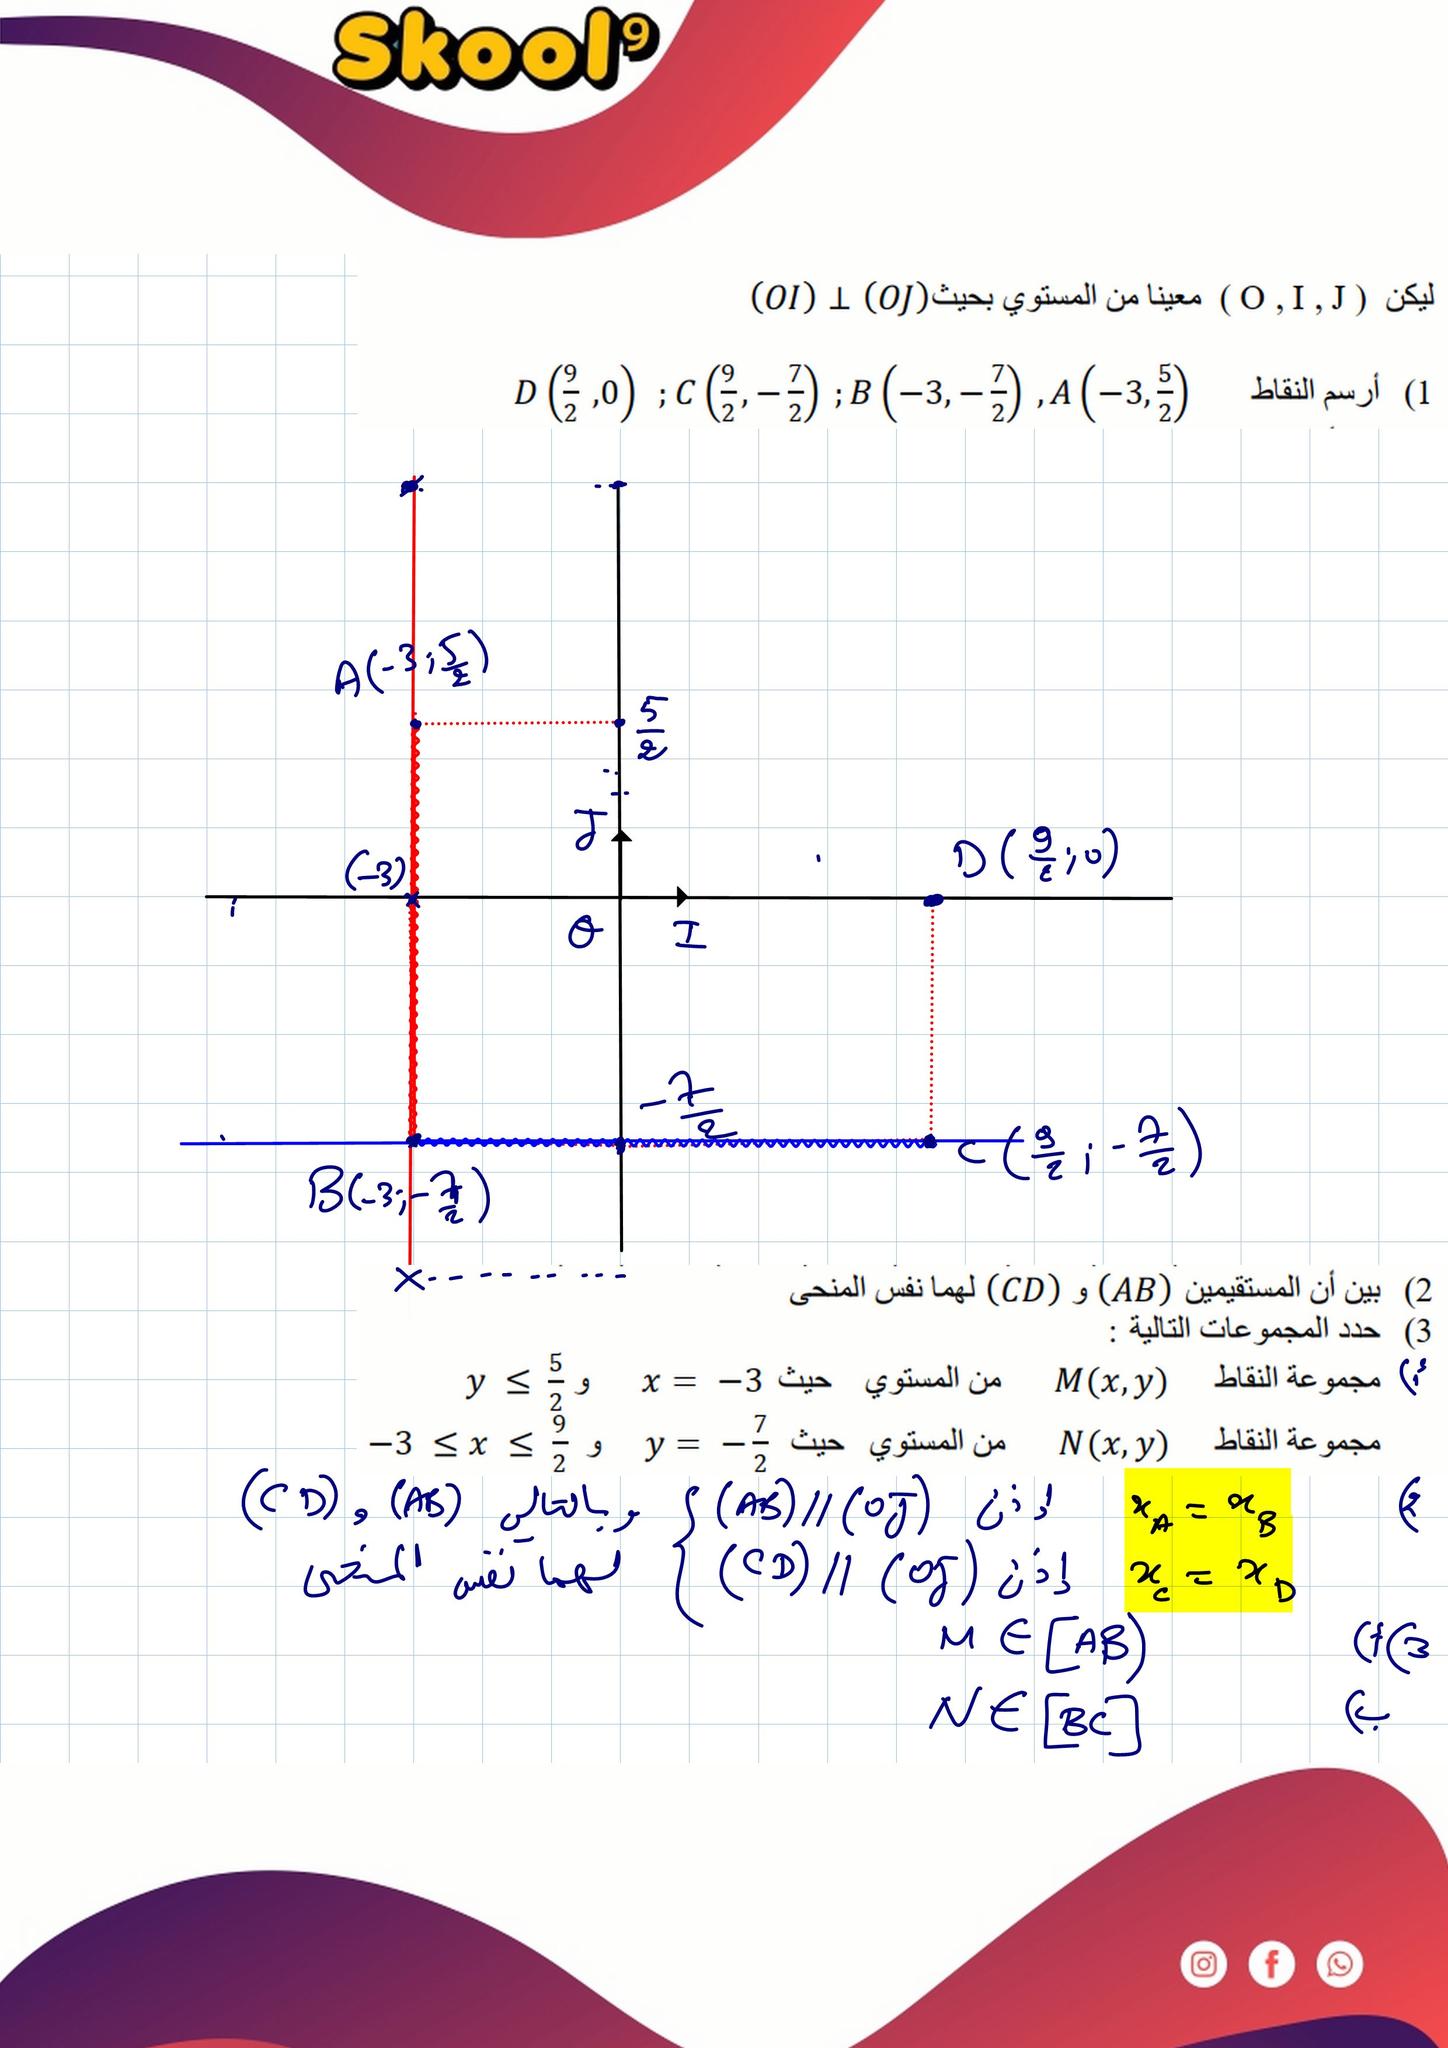 Skool⁹
ليكن ( O , I , J ) معينا من المستوي بحيث (OI) ⊥ (OJ)
1) أرسم النقاط A(−3, 5/2) , B(−3, −7/2) ; C(9/2, −7/2) ; D(9/2 ,0)
A(-3; 5/2)
5/2
J
(-3)
D(9/2; 0)
O
I
-7/2
B(-3; -7/2)
C(9/2; -7/2)
2) بين أن المستقيمين (AB) و (CD) لهما نفس المنحى
3) حدد المجموعات التالية :
أ) مجموعة النقاط M(x, y) من المستوي حيث x = −3 و y ≤ 5/2
مجموعة النقاط N(x, y) من المستوي حيث y = −7/2 و −3 ≤ x ≤ 9/2
2) x_A = x_B إذن (AB)//(OJ) وبالتالي (AB) و (CD)
x_C = x_D إذن (CD)//(OJ) لهما نفس المنحى
3) أ) M ∈ [AB)
ب) N ∈ [BC]